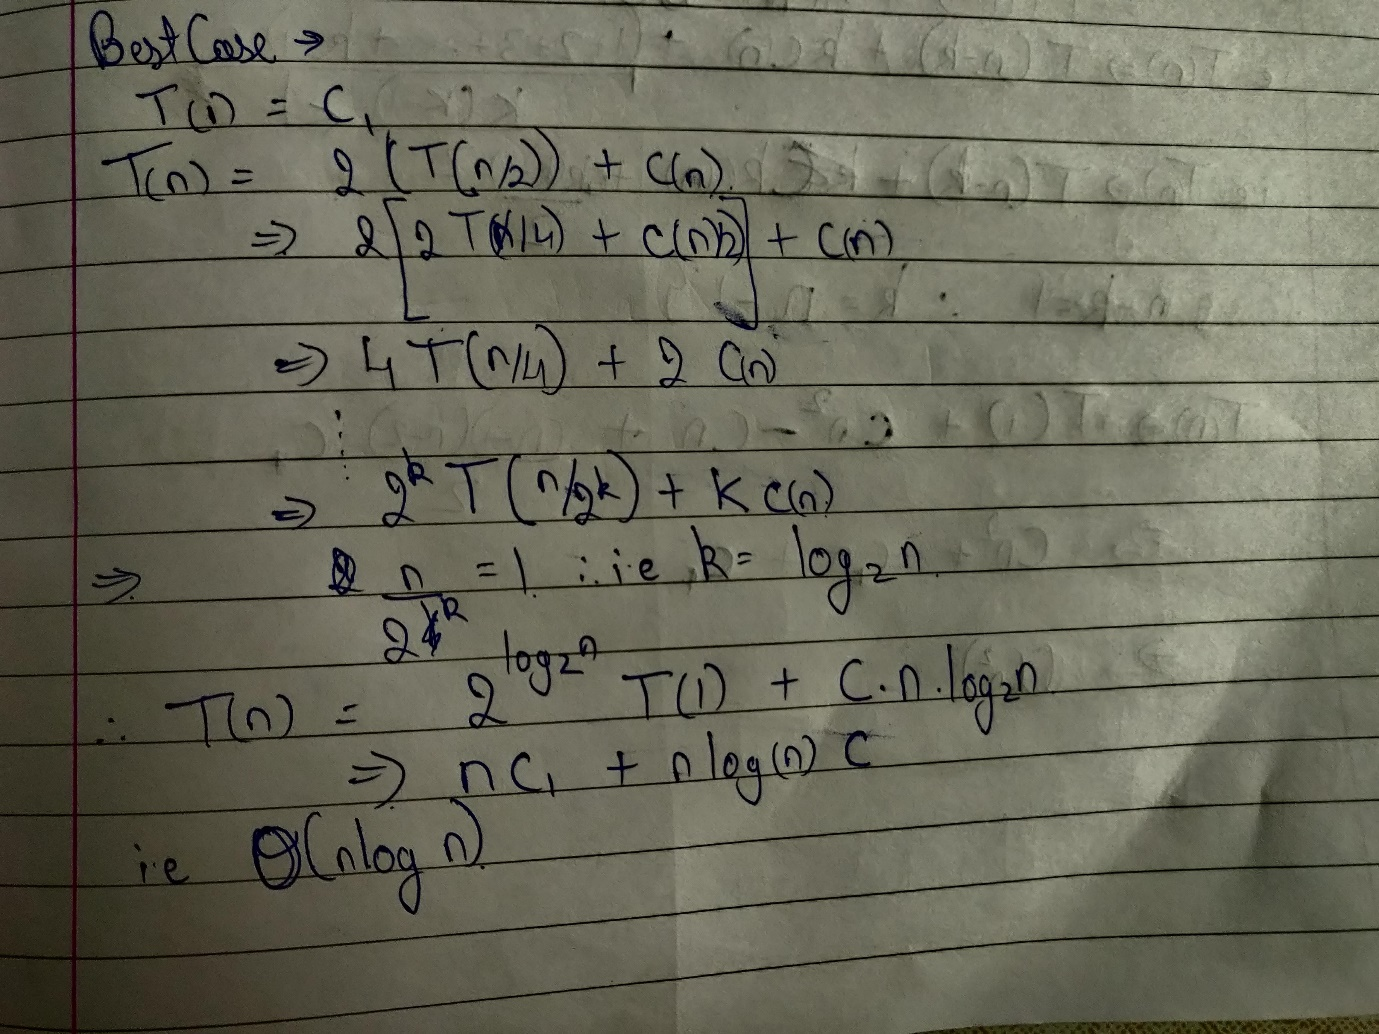 Best Case →
T(1) = C₁
T(n) = 2 (T(n/2)) + C(n)
⇒ 2[2 T(n/4) + C(n/2)] + C(n)
⇒ 4 T(n/4) + 2 C(n)
⋮
⇒ 2^k T(n/2^k) + K C(n)
⇒ n/2^k = 1 ∴ i.e k = log₂n
∴ T(n) = 2^log₂n T(1) + C.n.log₂n
⇒ nC₁ + nlog(n) C
i.e Θ(nlog n)